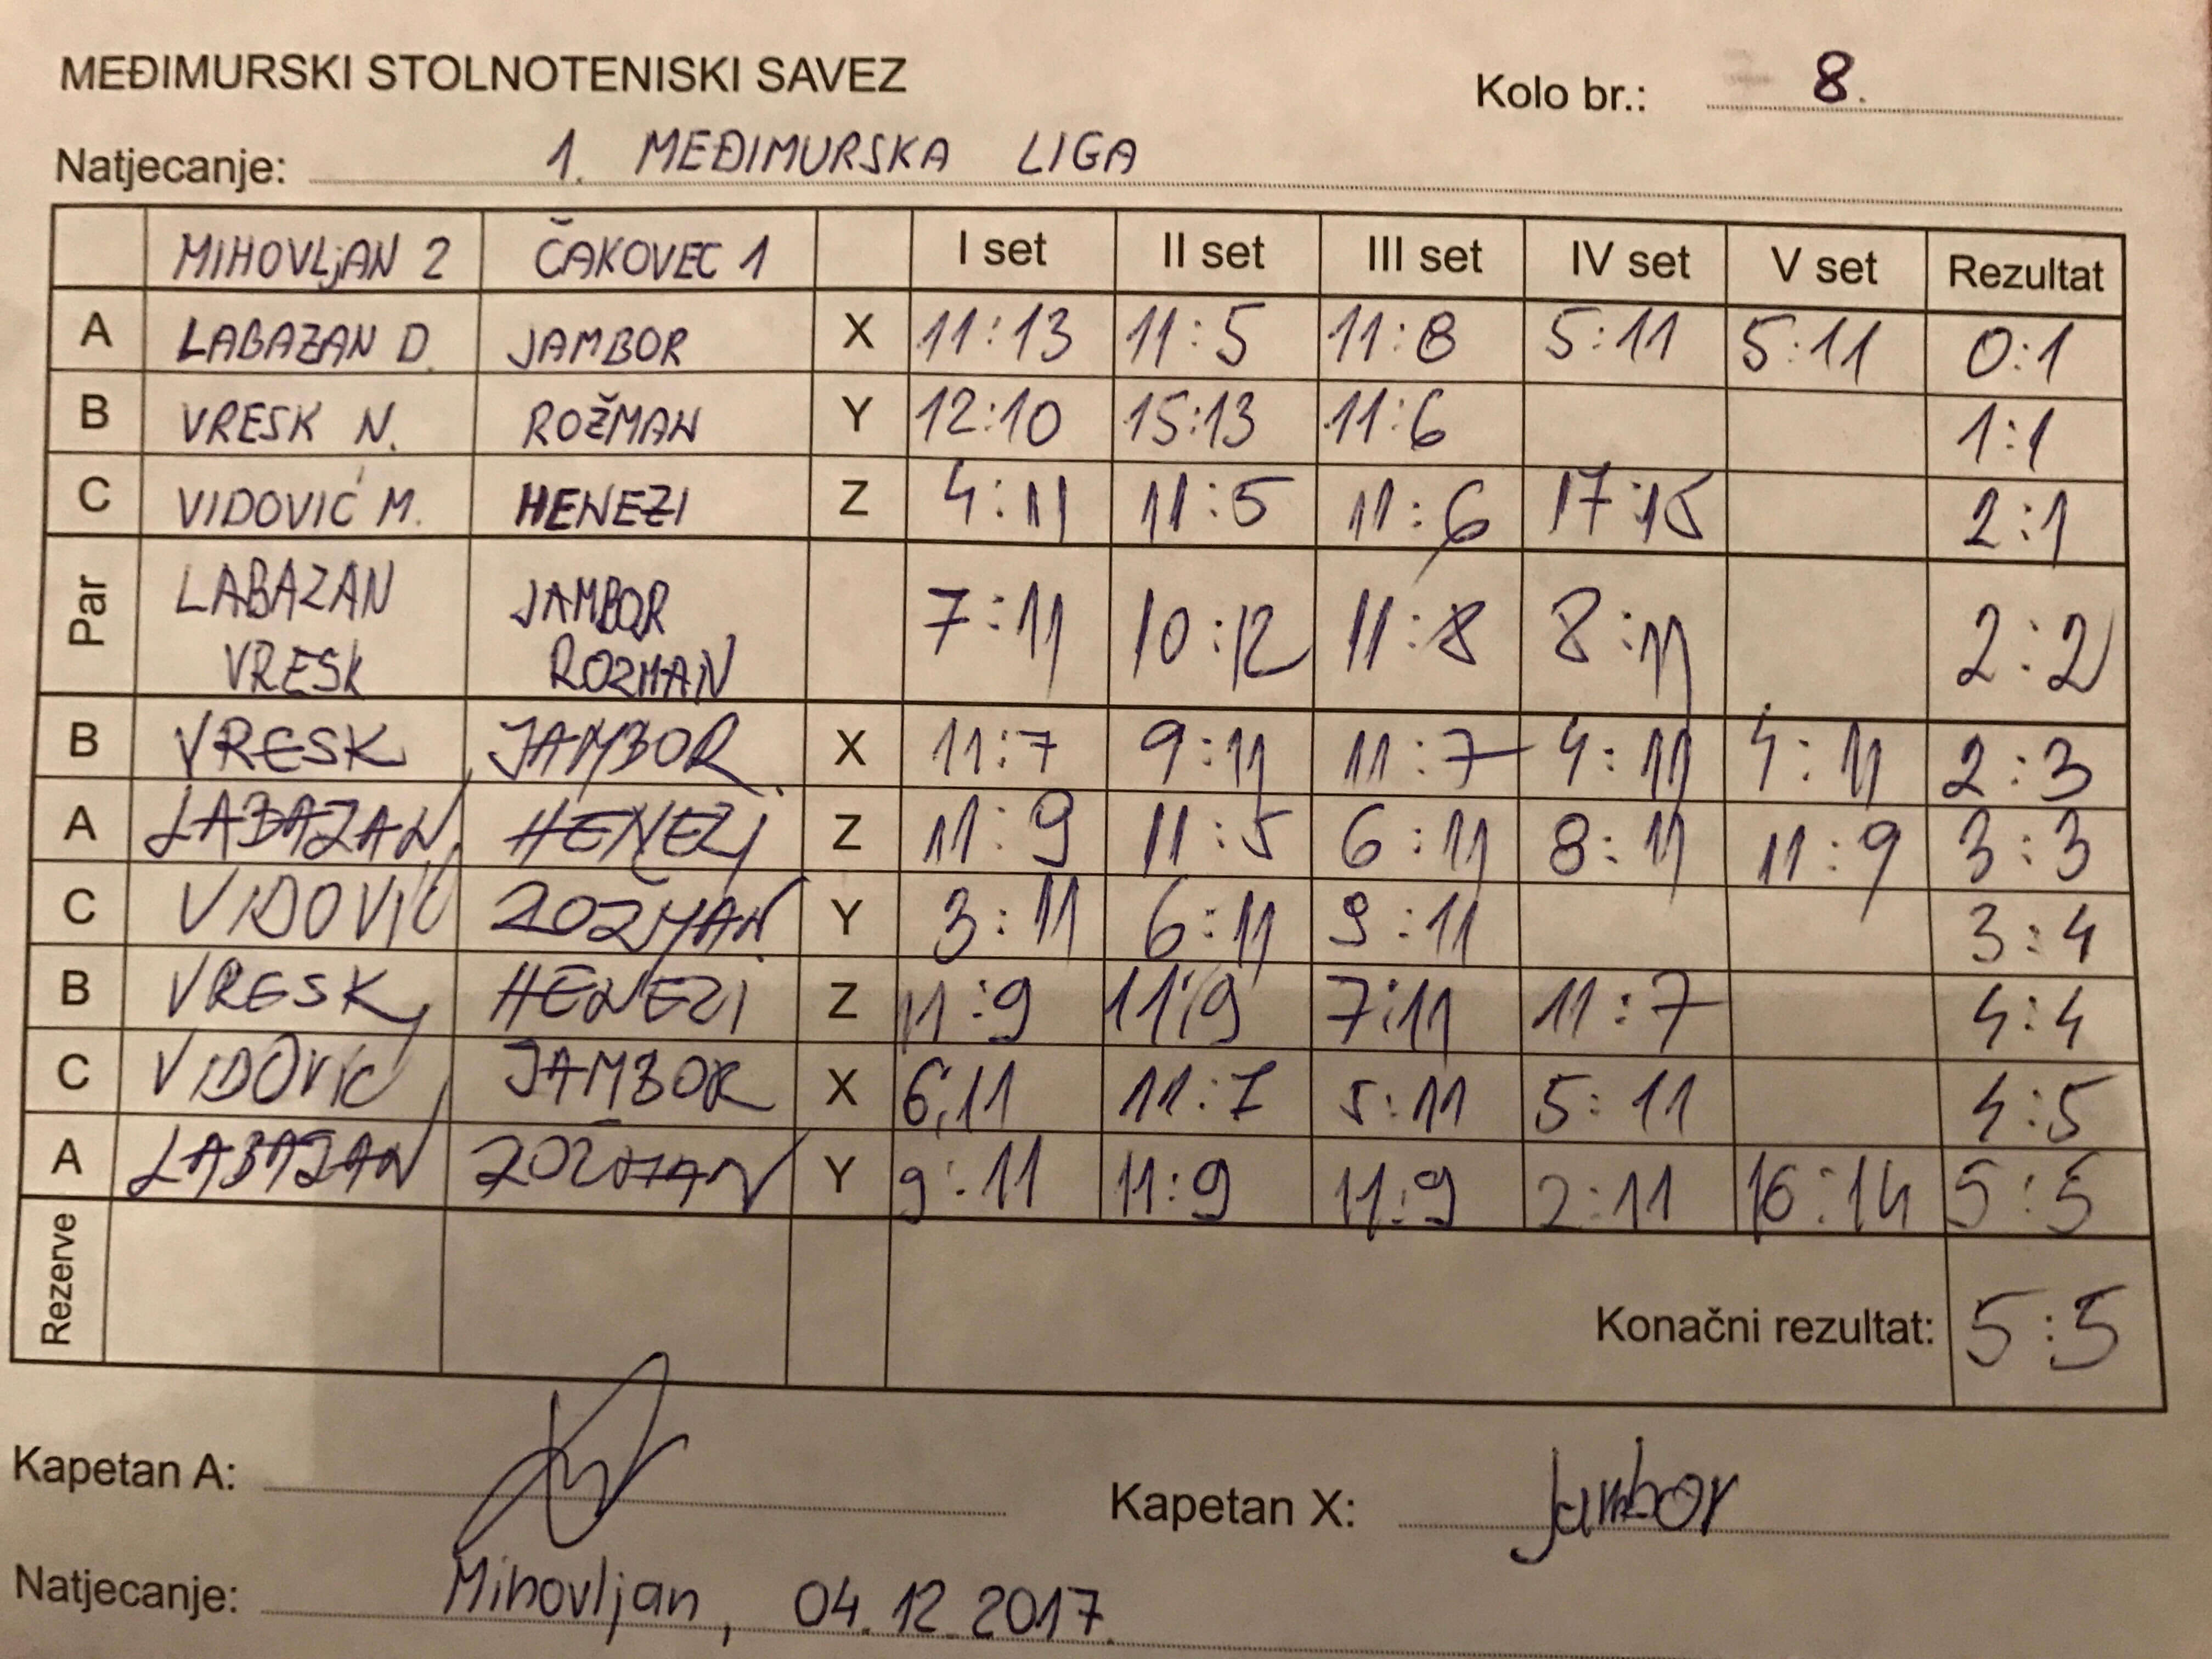 MEĐIMURSKI STOLNOTENISKI SAVEZ
Kolo br.: 8.
Natjecanje: 1. MEĐIMURSKA LIGA
MIHOVLjAN 2 ČAKOVEC 1 I set II set III set IV set V set Rezultat
A LABAZAN D. JAMBOR X 11:13 11:5 11:8 5:11 5:11 0:1
B VRESK N. ROŽMAN Y 12:10 15:13 11:6 1:1
C VIDOVIĆ M. HENEZI Z 4:11 11:5 11:6 17:15 2:1
Par LABAZAN JAMBOR 7:11 10:12 11:8 8:11 2:2
VRESK ROZMAN
B VRESK JAMBOR X 11:7 9:11 11:7 4:11 4:11 2:3
A LABAZAN HENEZI Z 11:9 11:5 6:11 8:11 11:9 3:3
C VIDOVIĆ ROŽMAN Y 3:11 6:11 9:11 3:4
B VRESK HENEZI Z 11:9 11:9 7:11 11:7 4:4
C VIDOVIC JAMBOR X 6:11 11:7 5:11 5:11 4:5
A LABAZAN ROŽMAN Y 9:11 11:9 11:9 2:11 16:14 5:5
Rezerve Konačni rezultat: 5:5
Kapetan A: Kapetan X: Jambor
Natjecanje: Mihovljan, 04.12.2017.